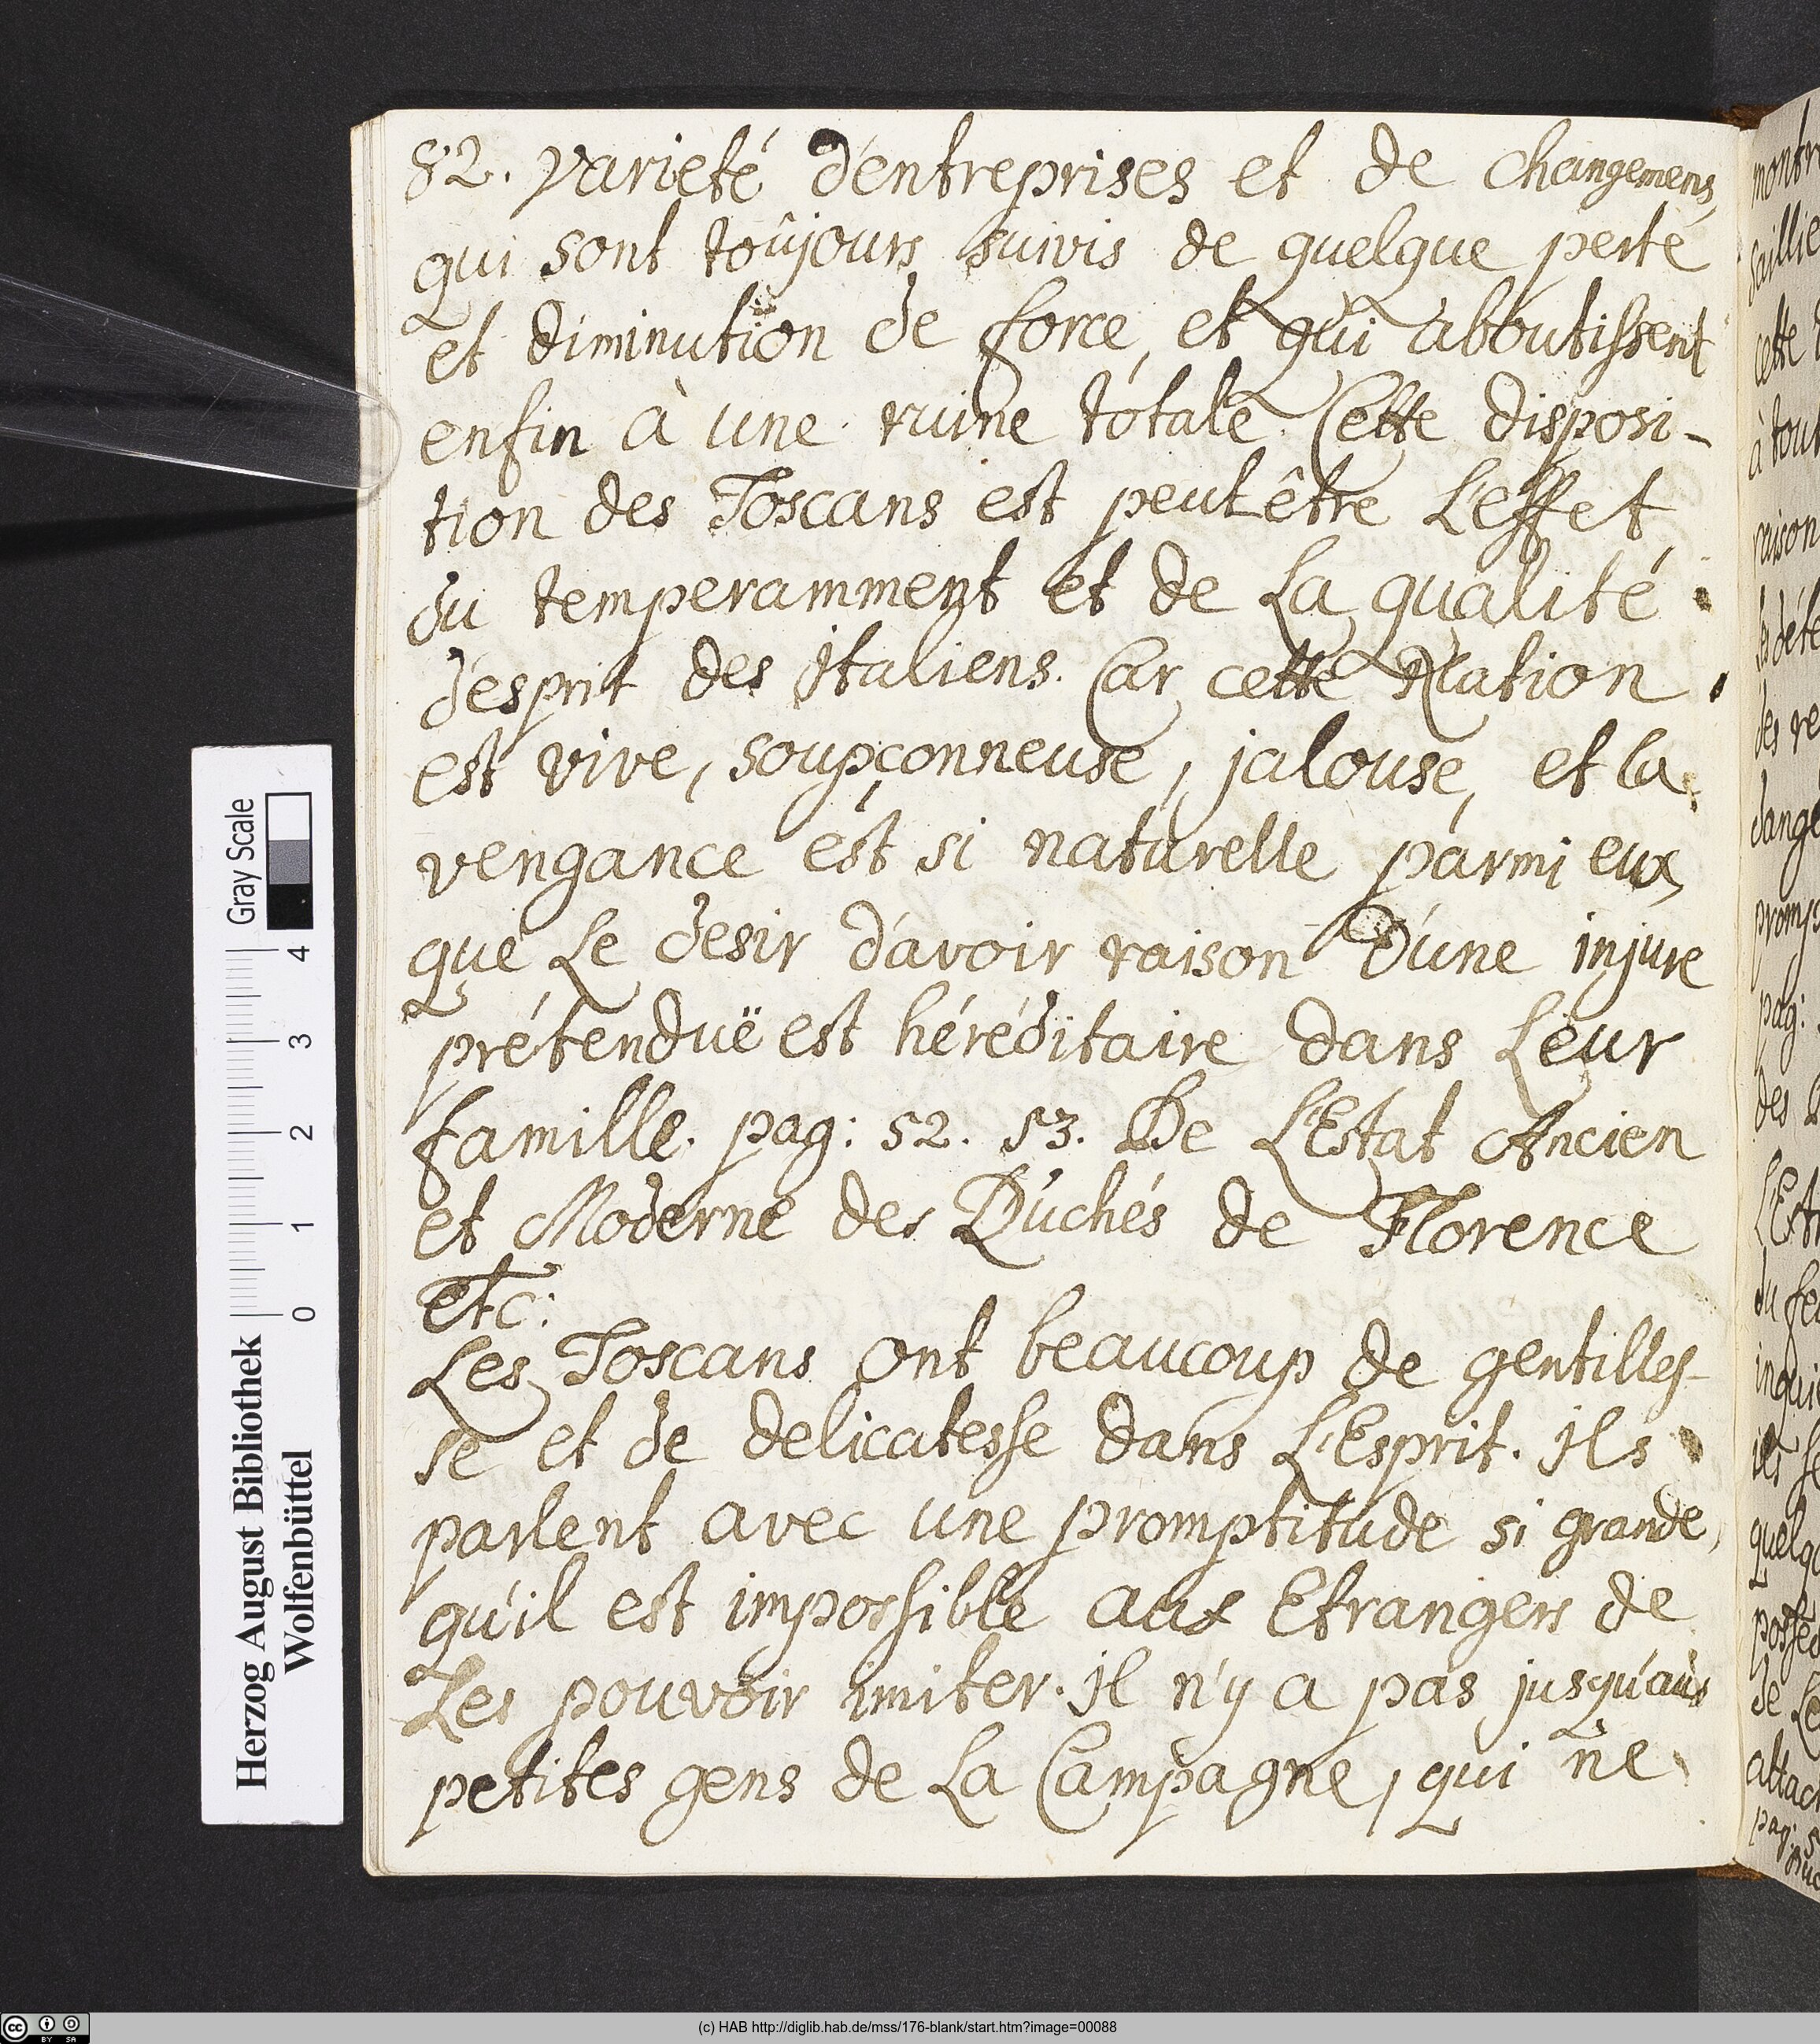 82. varieté d'entreprises et de changemens,
qui sont toûjours suivis de quelque perte
et diminution de force, et qui aboutissent
enfin à une ruine totale. Cette disposi-
tion des Toscans est peut être L'effet
du temperamment et de La qualité
d'esprit des Italiens. Car cette Nation
est vive, soupçonneuse, jalouse, et la
vengance est si naturelle parmi eux,
que Le desir d'avoir raison D'une injure
prétenduë est héréditaire dans Leur
famille. pag: 52. 53. De L'Estat Ancien
et Moderne des Duchés de Florence
etc:
Les Toscans ont beaucoup de gentilles-
se et de delicatesse dans L'Esprit. jls
parlent avec une promptitude si grande,
qu'il est impossible aux Etrangers de
Les pouvoir imiter. jl n'y a pas jusqu'aux
petites gens de La Campagne, qui ne
Herzog August Bibliothek
Wolfenbüttel
0 1 2 3 4
Gray Scale
(c) HAB http://diglib.hab.de/mss/176-blank/start.htm?image=00088
cc BY SA